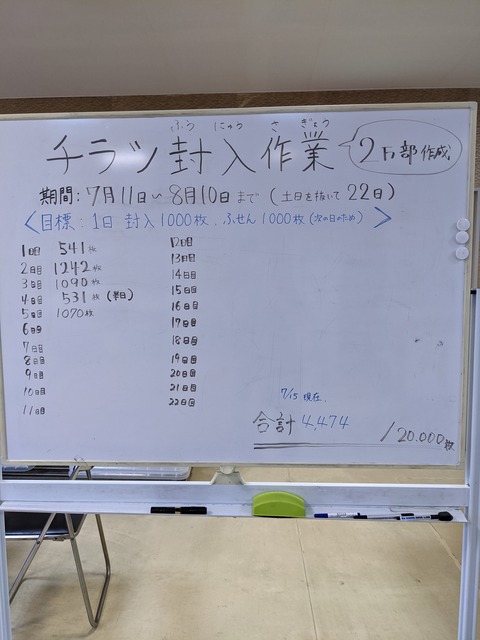 ふう にゅう さ ぎょう
チラシ封入作業
2万部作成
期間:7月11日~8月10日まで(土日を抜いて22日)
<目標:1日 封入1000枚、ふせん1000枚(次の日のため)>
1日目 541枚
2日目 1242枚
3日目 1090枚
4日目 531枚(半日)
5日目 1070枚
6日目
7日目
8日目
9日目
10日目
11日目
12日目
13日目
14日目
15日目
16日目
17日目
18日目
19日目
20日目
21日目
22日目
7/15 現在.
合計 4,474 /20.000枚